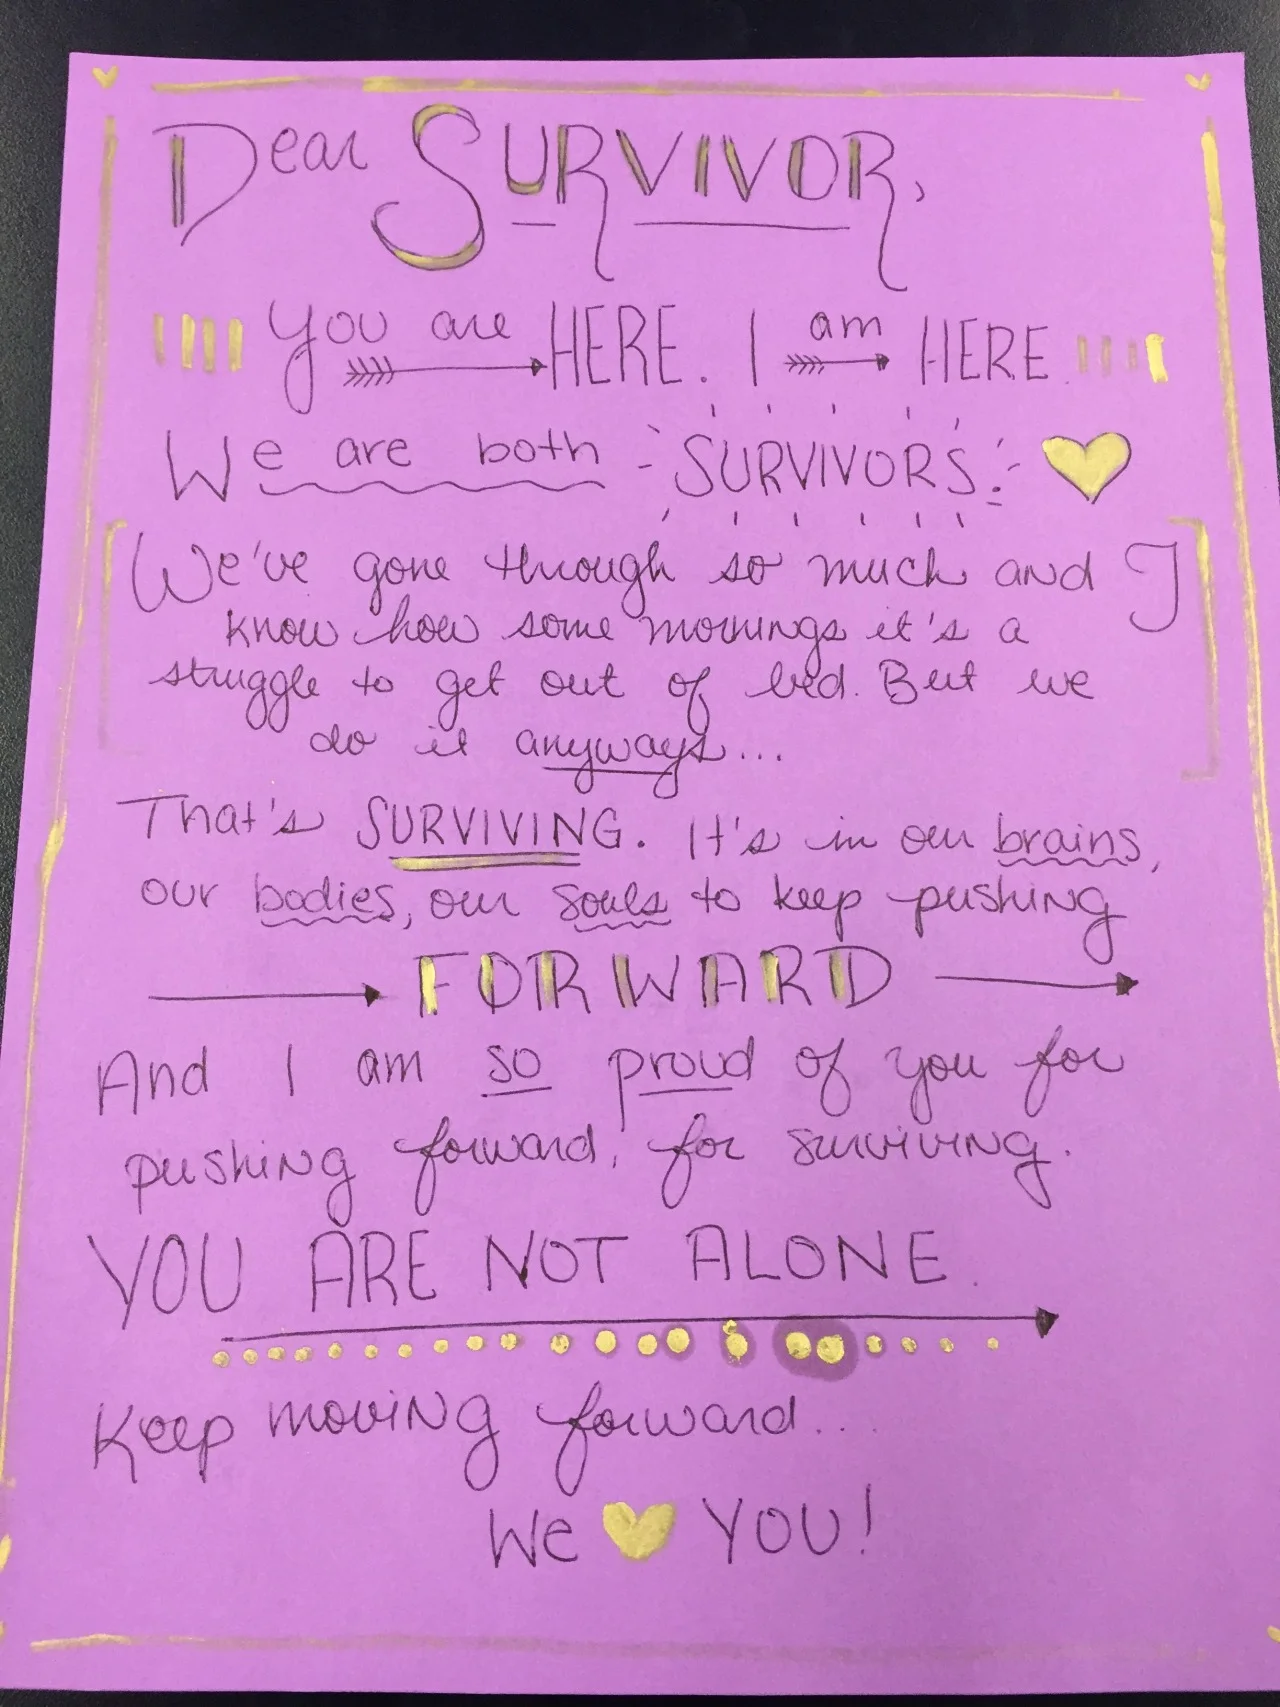 Dear SURVIVOR,
You are HERE. I am HERE.
We are both SURVIVORS.
We've gone through so much and I
know how some mornings it's a
struggle to get out of bed. But we
do it anyways...
That's SURVIVING. It's in our brains,
our bodies, our souls to keep pushing
FORWARD
And I am so proud of you for
pushing forward, for surviving.
YOU ARE NOT ALONE.
Keep moving forward...
We ♥ YOU!